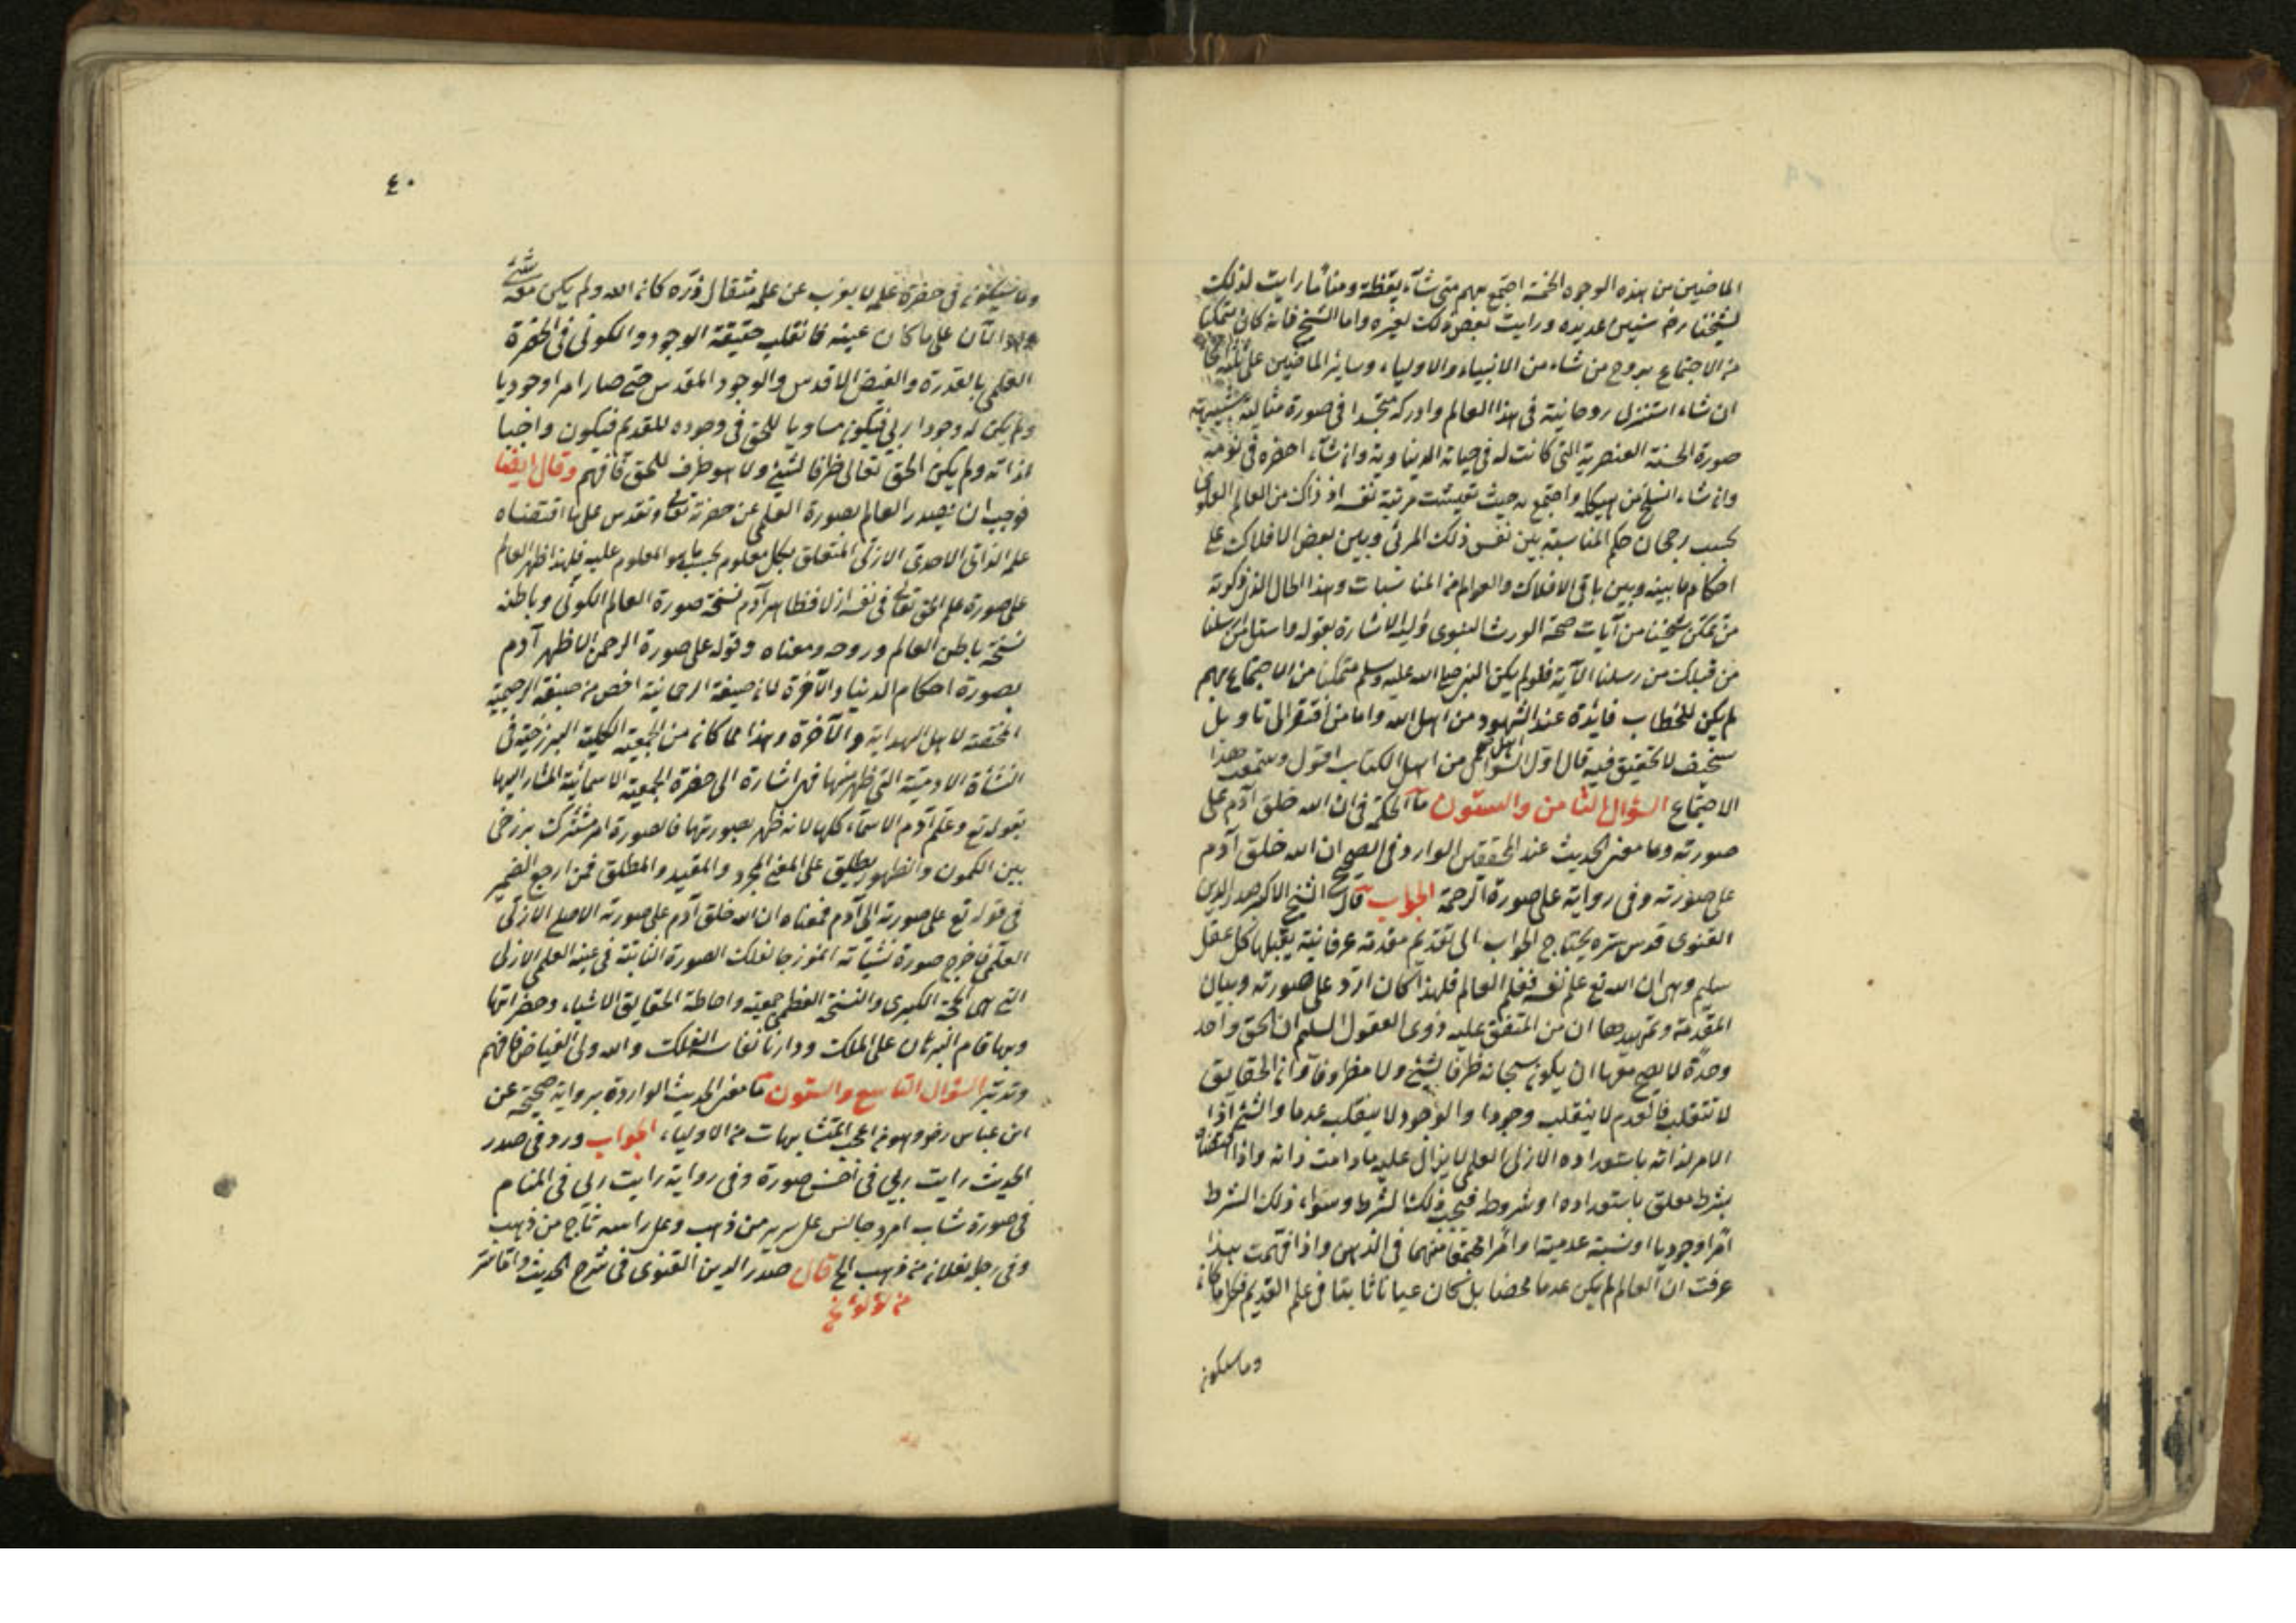 الماضين من هذه الوجوه الخمسة اجتمع بهم متى شآء يقظة ومناما رايت لذلك
لشيخنا رضه سنين عديده ورايت بعض ذلك لغيره واما الشيخ فانه كان متمكنا
من الاجتماع بروح من شاء من الانبياء والاولياء وسائر الماضين على ثلثة انحاء
ان شاء استنزل روحانيته فى هذا العالم وادركه متجسدا فى صورة مثالية شبيهة
صورة الحسنة العنصرية التى كانت له فى حياته الدنياوية وان شآء احضره فى نومه
وان شاء انسلخ من هيكله واجتمع به حيث تعينت مرتبة نفسه اذ ذاك من العالم العلوى
بحسب رجحان حكم المناسبة بين نفس ذلك المرئى وبين بعض الافلاك على
احكام ما بينه وبين باقى الافلاك والعوالم من المناسبات وهذا الحال الذى ذكرته
من تمكن شيخنا من آيات صحة الورث النبوى واليه الاشارة بقوله واسئل من ارسلنا
من قبلك من رسلنا الآية فلو لم يكن النبى صلى الله عليه وسلم متمكنا من الاجتماع بهم
لم يكن للخطاب فائدة عند الشهود من اهل الله واما من افتقر الى تاويل
سخيف لا تحقيق فيه قال اول السؤال من اهل الكتاب اقول وستبعد هذا
الاجتماع السؤال الثامن والستون ما الحكمة فى ان الله خلق آدم على
صورته وما معنى الحديث عند المحققين الوارد فى الصحيح ان الله خلق آدم
على صورته وفى رواية على صورة الرحمن الجواب قال الشيخ الاكبر صدر الدين
القنوى قدس سره يحتاج الجواب الى تقديم مقدمة عرفانية يقبلها كل عقل
سليم وهى ان الله تع علم نفسه فعلم العالم فلهذا كان ارد على صورته وبيان
المقدمة وتمهيدها ان من المتفق عليه ذوى العقول السليم ان الحق واحد
وحدة لا يصح معها ان يكون سبحانه ظرفا لشئ ولا مظروفا وان الحقايق
لا تنقلب فالعدم لا ينقلب وجودا والوجود لا ينقلب عدما والشئ اذا
الامر لذاته باستعداده الازلى العلمى لا يزال عليه ما دامت ذاته واذا اقتضاه
بشرط معلق باستعداده او شروطه فيجب ذلك الشرط وسواء ذلك الشرط
امرا وجوديا او نسبة عدمية او امرا محققا منهما فى الذهن واذا فهمت هذا
عرفت ان العالم لم يكن عدما محضا بل كان عيانا ثابتا فى علم القديم فكل ما كان
وما سيكون
٤٠
وما سيكون فى حضرة علمه لا يعزب عن علمه مثقال ذرة كان الله ولم يكن معه شئ
وهو الآن على ما كان عينه فانقلب حقيقة الوجود والكونى فى الحضرة
العلمى بالقدرة والفيض الاقدس والوجود المقدس حتى صار امرا وجوديا
ولم يكن له وجودا ازلى فيكون مساويا للحق فى وجوده للقديم فيكون واجبا
لذاته ولم يكن الحق تعالى ظرفا لشئ ولا هو ظرف للحق فافهم وقال ايضا
فوجب ان يصدر العالم بصورة العلمى عن حضرته تعالى وتقدس على ما اقتضاه
علمه الذاتى الاحدى الازلى المتعلق بكل معلوم بحسب ما هو المعلوم عليه فلهذا ظهر العالم
على صورة علم الحق تعالى فى نفسه ازلا فظاهر آدم نسخة صورة العالم الكونى وباطنه
نسخة باطن العالم وروحه ومعناه وقوله على صورة الرحمن الا ظهر آدم
بصورة احكام الدنيا والآخرة لان صيغة الرحمانية اخص من صبغة الرحيمية
المختصة لاهل الهداية والآخرة وهذا مما كان من الجمعية الكلية البرزخية فى
النشأة الادمية التى ظهر منها فهى اشارة الى حضرة الجمعية الاسمائية المشار اليها
بقوله تع وعلم آدم الاسماء كلها لانه ظهر بصورتها فالصورة امر مشترك برزخى
بين الكمون والظهور يطلق على المعنى المجرد والمقيد والمطلق فمن ارجع الضمير
فى قوله تع على صورته الى آدم فمعناه ان الله خلق آدم على صورته الاصلع الازلى
العلمى فاخرج صورة نشيأته انموزجا لفلك الصورة الثابتة فى عينه العلمى الازلى
التى هى الحجة الكبرى والنسخة العظمى جمعية واحاطة الحقايق الاشياء وحضراتها
وبها قام البرهان على الملك ودار بانفاسه الفلك والله ولى الفياض فافهم
وتدبر السؤال التاسع والستون ما معنى الحديث الواردة برواية صحيحة عن
ابن عباس رضه وهو من اعجب المتشابهات من الاولياء الجواب ورد فى صدر
الحديث رايت ربى فى احسن صورة وفى رواية رايت ربى فى المنام
فى صورة شاب امرد جالس على سرير من ذهب وعلى راسه تاج من ذهب
وفى رجله نعلان من ذهب الخ قال صدر الدين القنوى فى شرح الحديث واقاستر
من لؤلؤ نخ